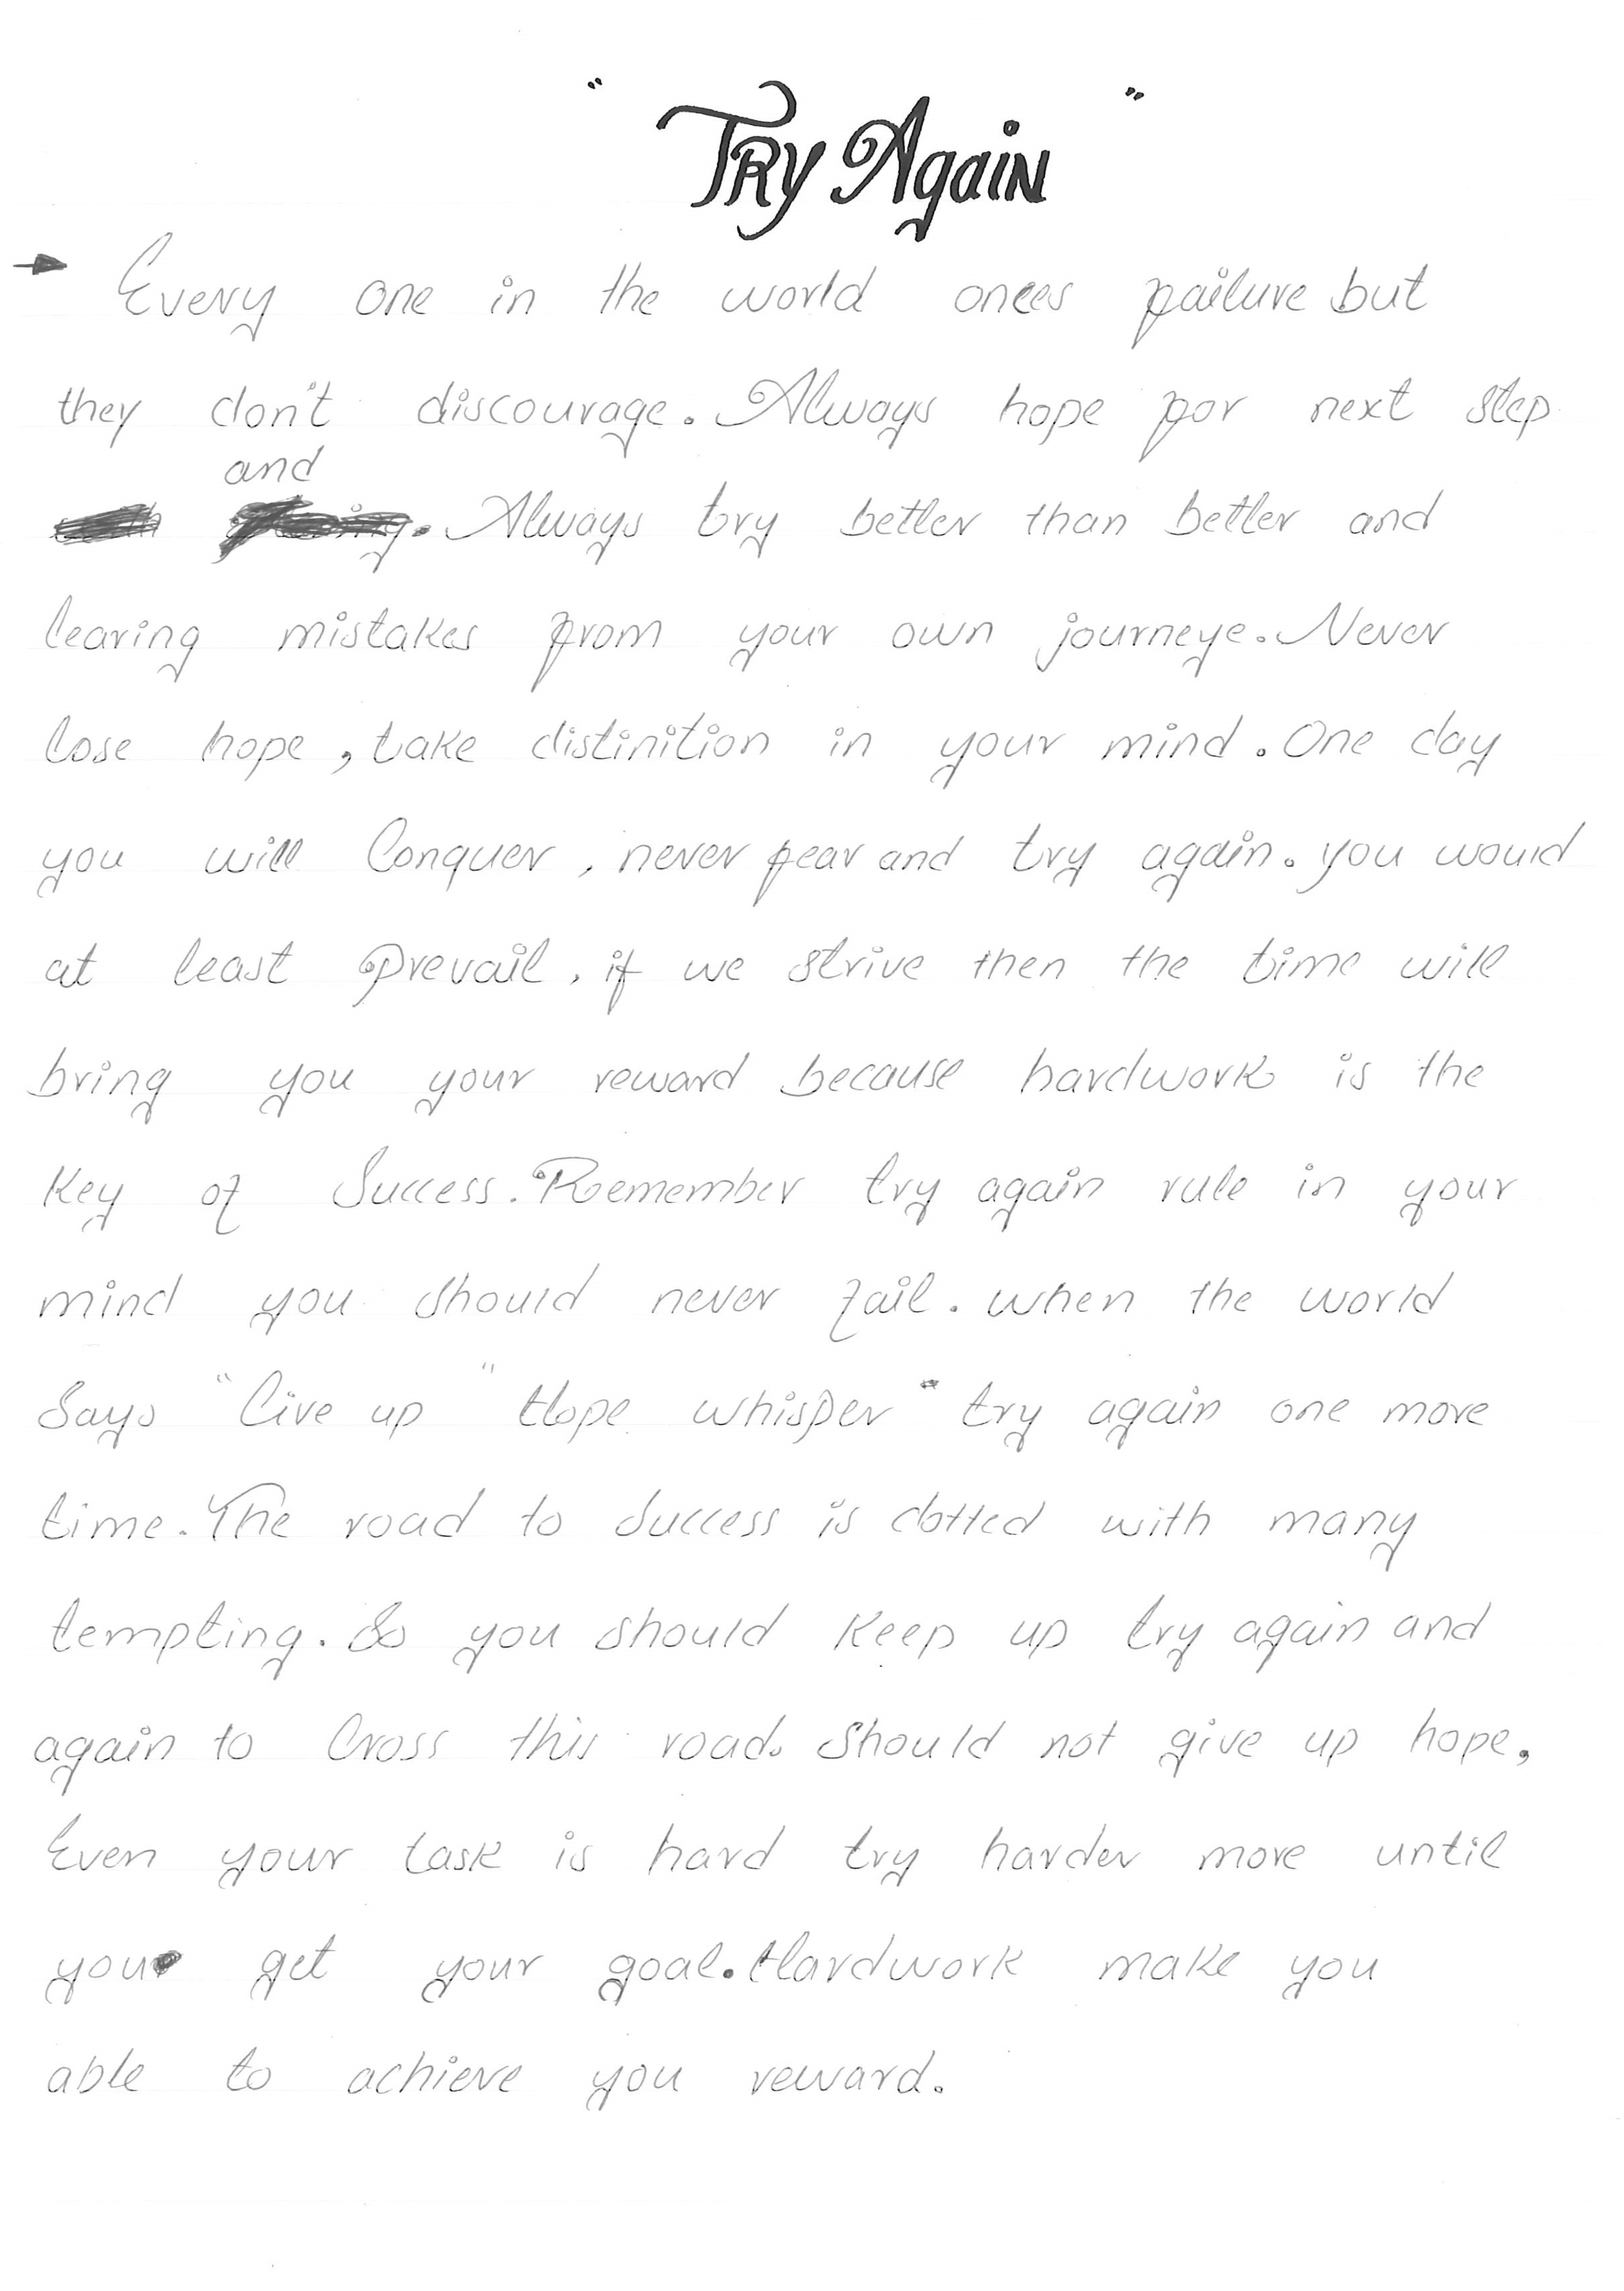 " Try Again "
→ Every one in the world onces failure but
they don't discourage. Always hope for next step
and
. Always try better than better and
learing mistakes from your own journeye. Never
lose hope, take distinition in your mind. One day
you will Conquer, never fear and try again. you would
at least Prevail, if we strive then the time will
bring you your reward because hardwork is the
Key of Success. Roemember try again rule in your
mind you should never fail. when the world
Says "Give up" Hope whisper " try again one more
time. The road to Success is dotted with many
tempting. So you should Keep up try again and
again to Cross this road. Should not give up hope,
Even your task is hard try harder more until
you get your goal. Hardwork make you
able to achieve you reward.